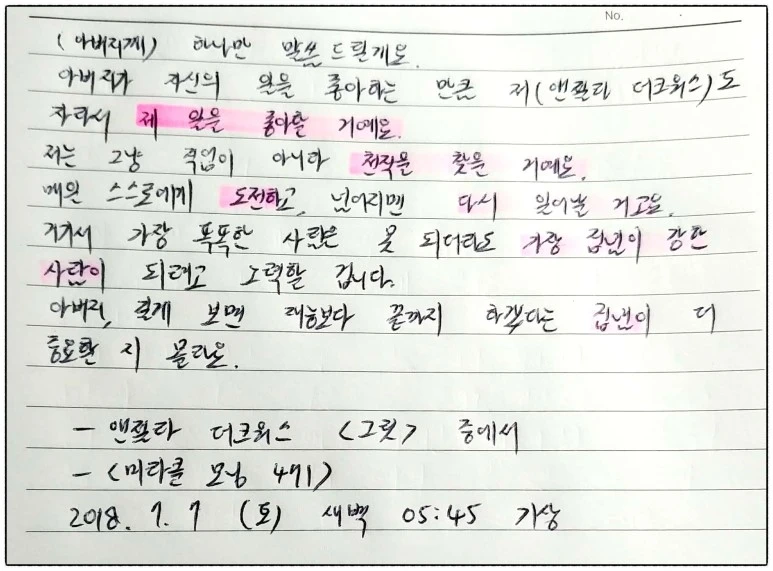 No.
(아버지께) 하나만 말씀 드릴게요.
아버지가 자신의 일을 좋아하는 만큼 저(앤절라 더크워스)도
자라서 제 일을 좋아할 거예요.
저는 그냥 직업이 아니라 천직을 찾을 거예요.
매일 스스로에게 도전하고, 넘어지면 다시 일어날 거고요.
거기서 가장 똑똑한 사람은 못 되더라도 가장 집념이 강한
사람이 되려고 노력할 겁니다.
아버지, 길게 보면 재능보다 끝까지 하겠다는 집념이 더
중요한 지 몰라요.
- 앤절라 더크워스 <그릿> 중에서
- <미라클 모닝 471>
2018. 7. 7 (토) 새벽 05:45 기상